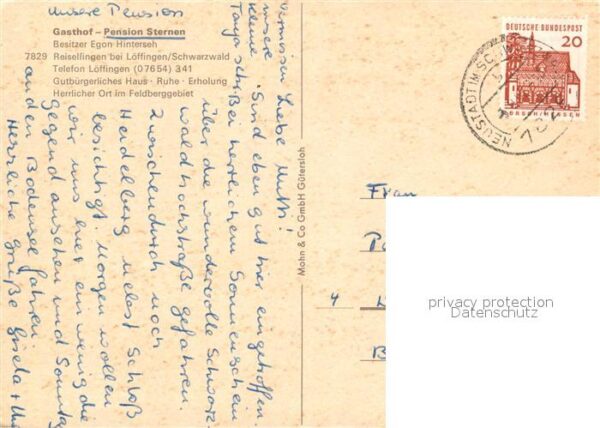 unsere Pension
Gasthof – Pension Sternen
Besitzer Egon Hinterseh
7829 Reiselfingen bei Löffingen/Schwarzwald
Telefon Löffingen (07654) 341
Gutbürgerliches Haus · Ruhe · Erholung
Herrlicher Ort im Feldberggebiet
Liebe Mutti!
Sind eben gut hier eingetroffen.
bei herrlichem Sonnenschein
über die wundervolle Schwarz-
waldhochstraße gefahren.
Zwischendurch noch
Heidelberg nebst Schloß
besichtigt. Morgen wollen
wir uns hier ein wenig die
Gegend ansehen und Sonntag
an den Bodensee fahren.
Herzliche Grüße Gisela +
vermissen
unsere
kleine
Tanja
Mohn & Co GmbH Gütersloh
DEUTSCHE BUNDESPOST
20
LORSCH/HESSEN
NEUSTADT IM
Frau
4
B
privacy protection
Datenschutz